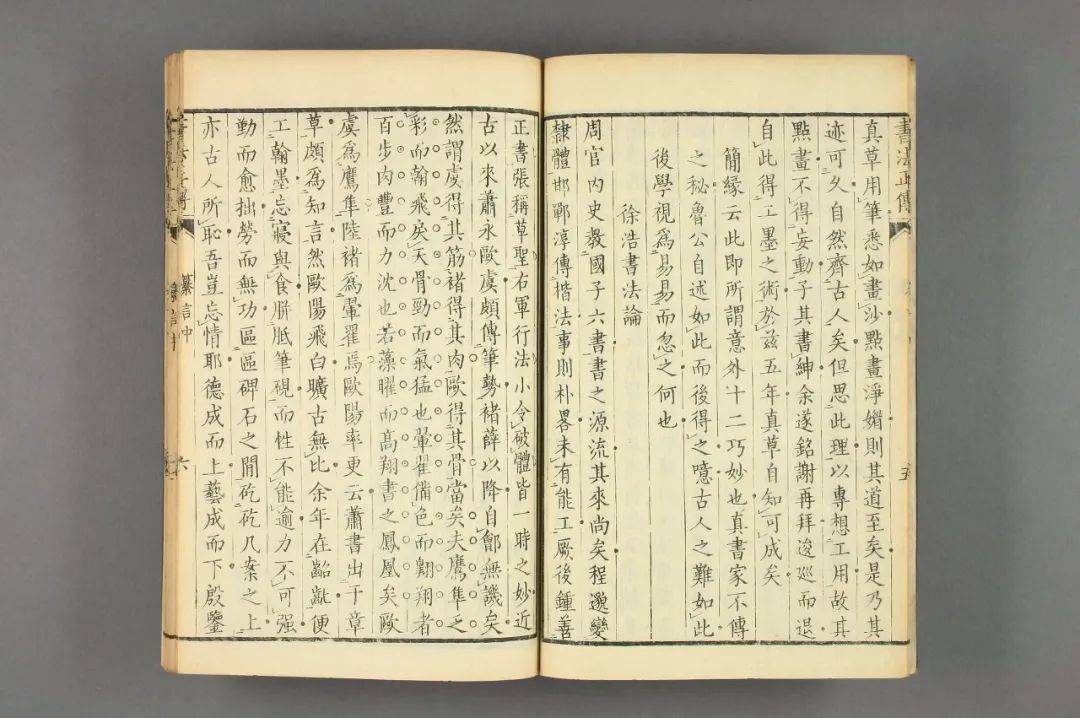 書法正傳
真草用筆悉如畫沙點畫淨媚則其道至矣是乃其
迹可久自然齊古人矣但思此理以專想工用故其
點畫不得妄動子其書紳余遂銘謝再拜逡廵而退
自此得工墨之術於茲五年真草自知可成矣
簡緣云此即所謂意外十二巧妙也真書家不傳
之秘魯公自述如此而後得之噫古人之難如此
後學視為易易而忽之何也
徐浩書法論
周官内史教國子六書書之源流其來尚矣程邈變
隸體邯鄲淳傳楷法事則朴畧未有能工厥後鍾善
五
正書張稱草聖右軍行法小令破體皆一時之妙近
古以來蕭永歐虞頗傳筆勢褚薛以降自鄶無譏矣
然謂虞得其筋褚得其肉歐得其骨當矣夫鷹隼乏
彩而翰飛矣天骨勁而氣猛也翬翟備色而翺翔者
百步肉豐而力沈也若藻曜而髙翔書之鳳凰矣歐
虞為鷹隼陸褚為翬翟焉歐陽率更云蕭書出于章
草頗為知言然歐陽飛白曠古無比余年在齠齔便
工翰墨忘寢與食胼胝筆硯而性不能逾力不可强
勤而愈拙勞而無功區區碑石之間矻矻几案之上
亦古人所恥吾豈忘情耶德成而上藝成而下殷鑒
纂言中
六